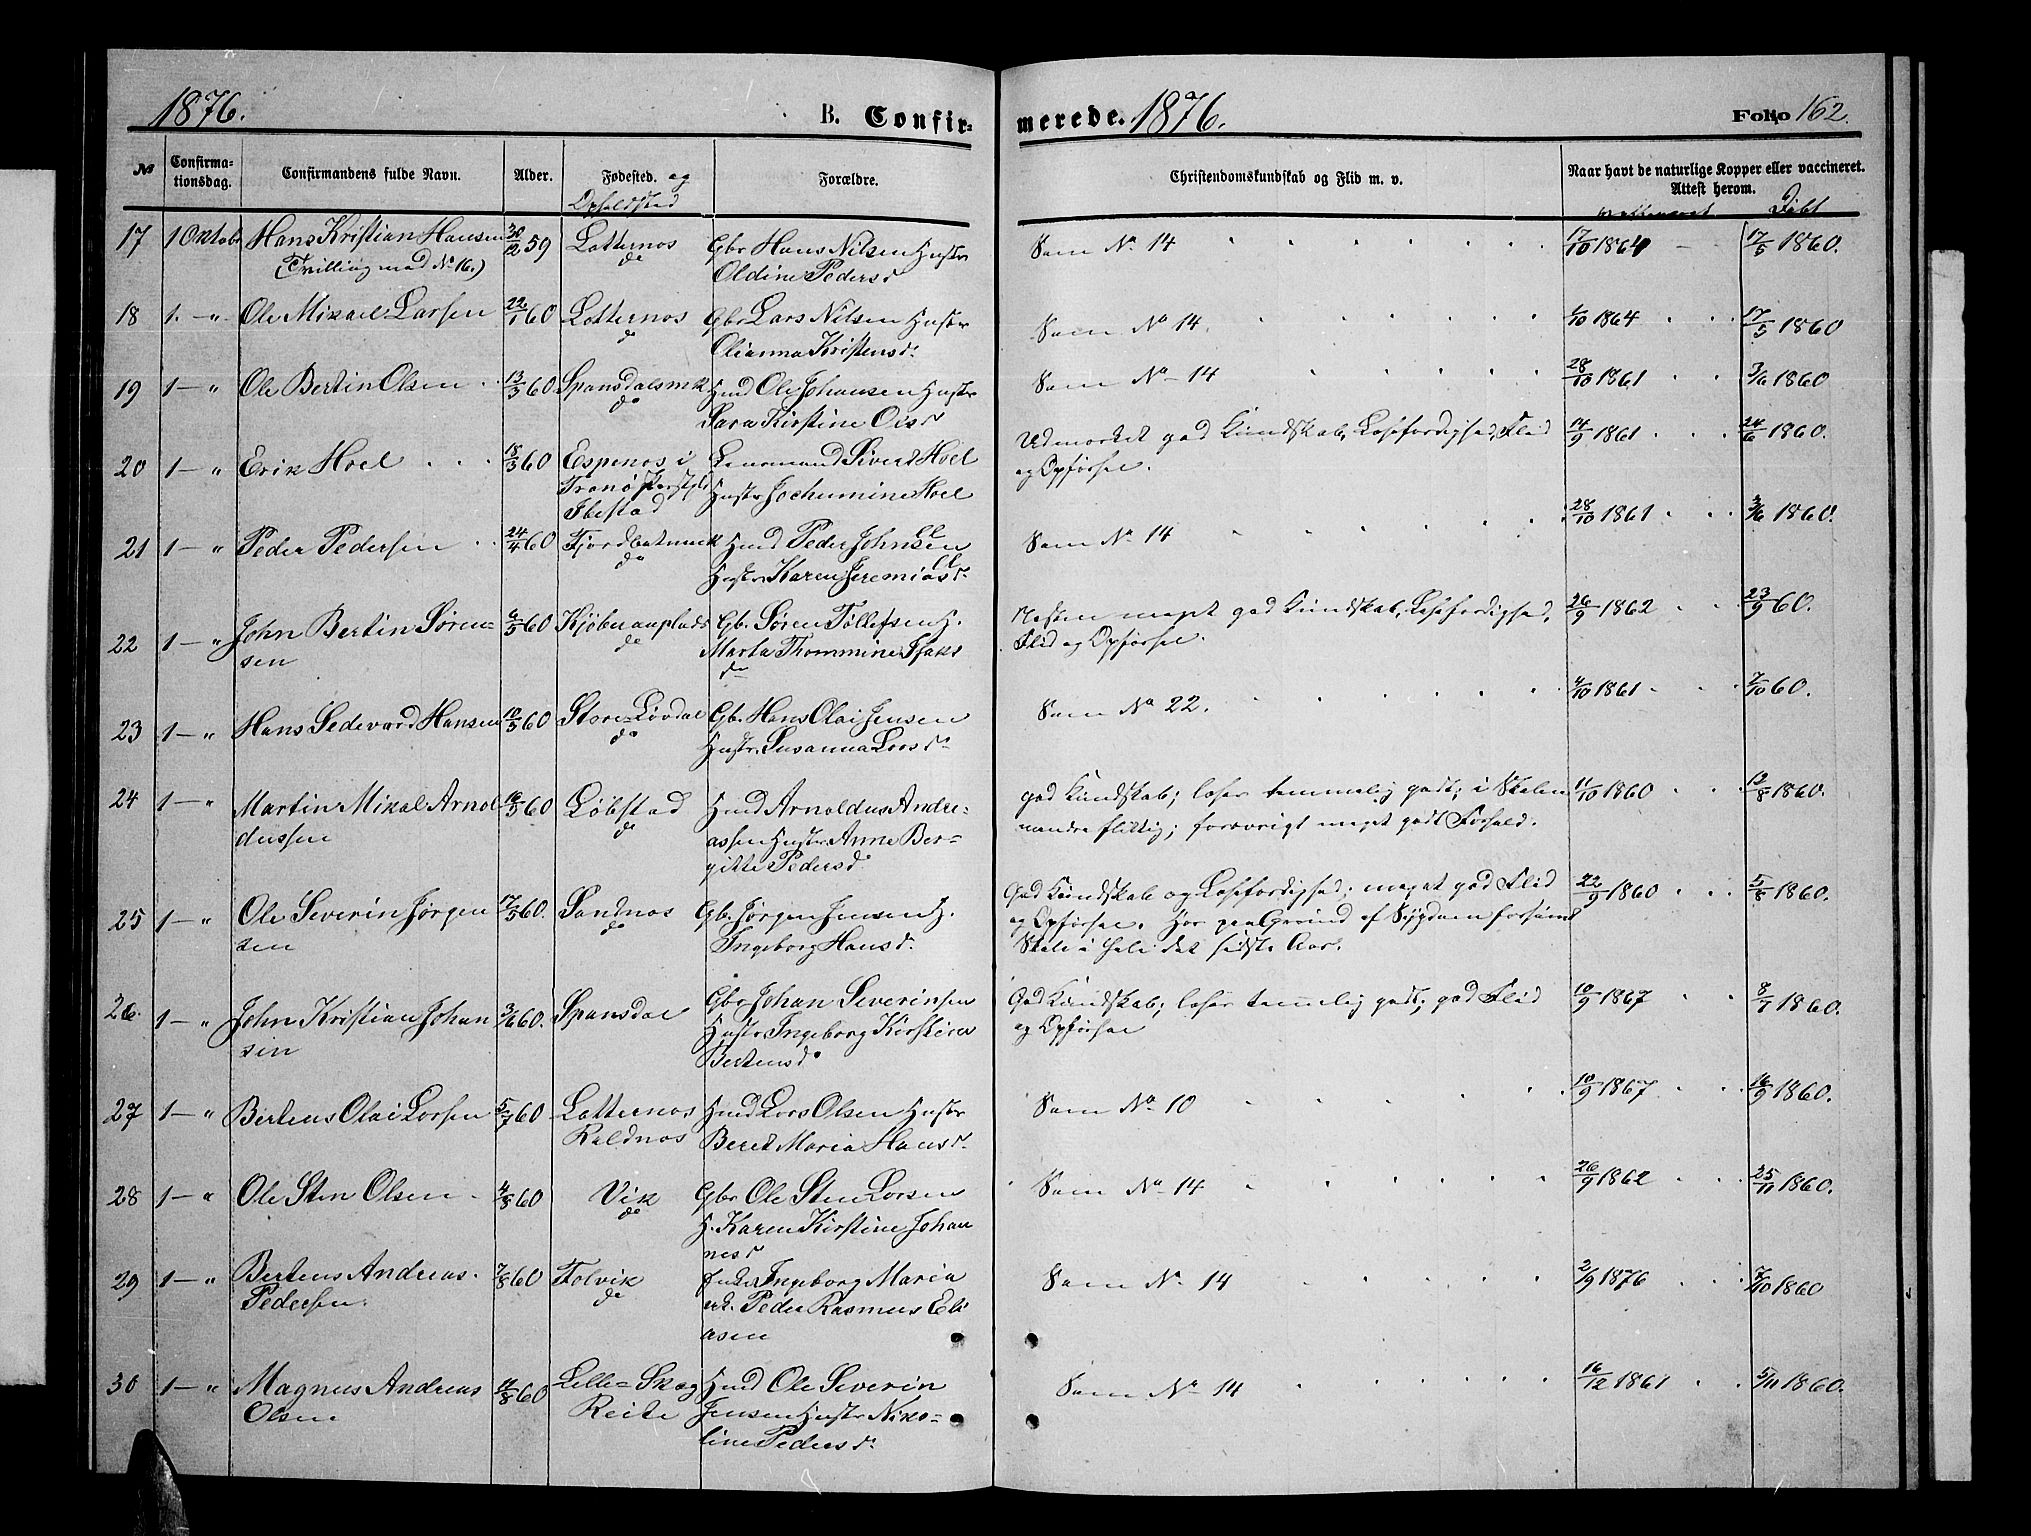 1876. B. Confirmerede. 1876. Folio 162.
№ Confirmationsdag. Confirmandens fulde Navn. Alder. Fødested. og Opholdsted Forældre. Christendomskundskab og Flid m. v. Naar havt de naturlige Kopper eller vaccineret. Attest herom. Døbt
17 1 Oktobr Hans Kristian Hansen 30/12 59 Lotternes Gbr Hans Nilsen Hustr Som No 14 17/10 1864 17/5 1860.
(Tvilling med No 16.) do Oldine Pedersd
18 1. — " Ole Mikael Larsen 22/1 60 Lotternes Gbr Lars Nilsen Hustr Som No 14. 1/10 1864 17/5 1860
do Olianna Kristensdr
19 1 — " Ole Bertin Olsen 13/3 60 Spansdalsmk Hmd Ole Johansen Hustr Som No 14 28/10 1861 3/6 1860
do Sara Kirstine Olsd
20 1 — " Erik Hoel 18/3 60 Espenes i Lensmand Sivert Hoel Udmærket god Kundskab, Læsefærdighed, Flid 14/9 1861 24/6 1860.
Tranø Præstgj Hustr Jochumine Hoel og Opførsel.
Ibestad
21 1 — " Peder Pedersen 24/4 60 Fjordbotmark Hmd Peder Johnsen Som No 14 28/10 1861 3/6 1860.
do Hustr Karen Jeremiasdr
22 1 — " John Bertin Søren- 6/5 60 Gb. Søren Tollefsen H. Næsten meget god Kundskab, Læsefærdighed, 26/9 1862 23/9 60.
sen do Marta Thommine Isaks Flid og Opførsel.
dr
23 1 — " Hans Sedevard Hansen 10/5 60 Store-Løvdal Gb. Hans Olai Jensen Som No 22. 4/10 1861 7/10 60.
do Hustr. Susanna Larsdr
24 1 — " Martin Mikal Arnol 16/5 60 Løbstad Hmd Arnoldus Andre- god Kundskab; læser temmelig godt; i Skolen 11/10 1860 12/8 1860.
dussen do assen Hustr Anne Ber- mindre flittig; forøvrigt meget godt Forhold.
gitte Pedersdr
25 1 — " Ole Severin Jørgen 17/5 60. Sandnes Gb. Jørgen Jensen H. God Kundskab og Læsefærdighed; meget god Flid 22/9 1860 5/8 1860.
sen do Ingeborg Hansdr og Opførsel. Har paa Grund af Sygdom forsømt
Skole i hele det sidste Aar.
26. 1 — " John Kristian Johan 3/6 60. Spansdal Gbr Johan Severinsen God Kundskab; læser temmelig godt; god Flid 10/9 1867 8/7 1860.
sen Hustr Ingeborg Kirstina og Opførsel
Bertensdr
27 1 — " Bertens Olai Larsen 5/7 60 Lotternes Hmd Lars Olsen Hustr Som No 10 10/9 1867 16/9 1860.
Roldnes Beret Maria Hansdr
28 1 — " Ole Sten Olsen 4/8 60 Vik Gbr Ole Sten Larsen Som No 14 26/9 1862 25/11 1860.
do H. Karen Kirstine Johan
nesd
29 1 — " Bertens Andreas 7/8 60 Folvik Ingeborg Maria Som No 14 2/9 1876 7/10 1860
Pedersen. do Peder Rasmus Eli
asen
30 1 — " Magnus Andreas 11/8 60 Lille-Skog Hmd Ole Severin Som No 14 16/12 1861 5/11 1860.
Olsen Reite Jensen Hustr Niko-
line Pedersdr